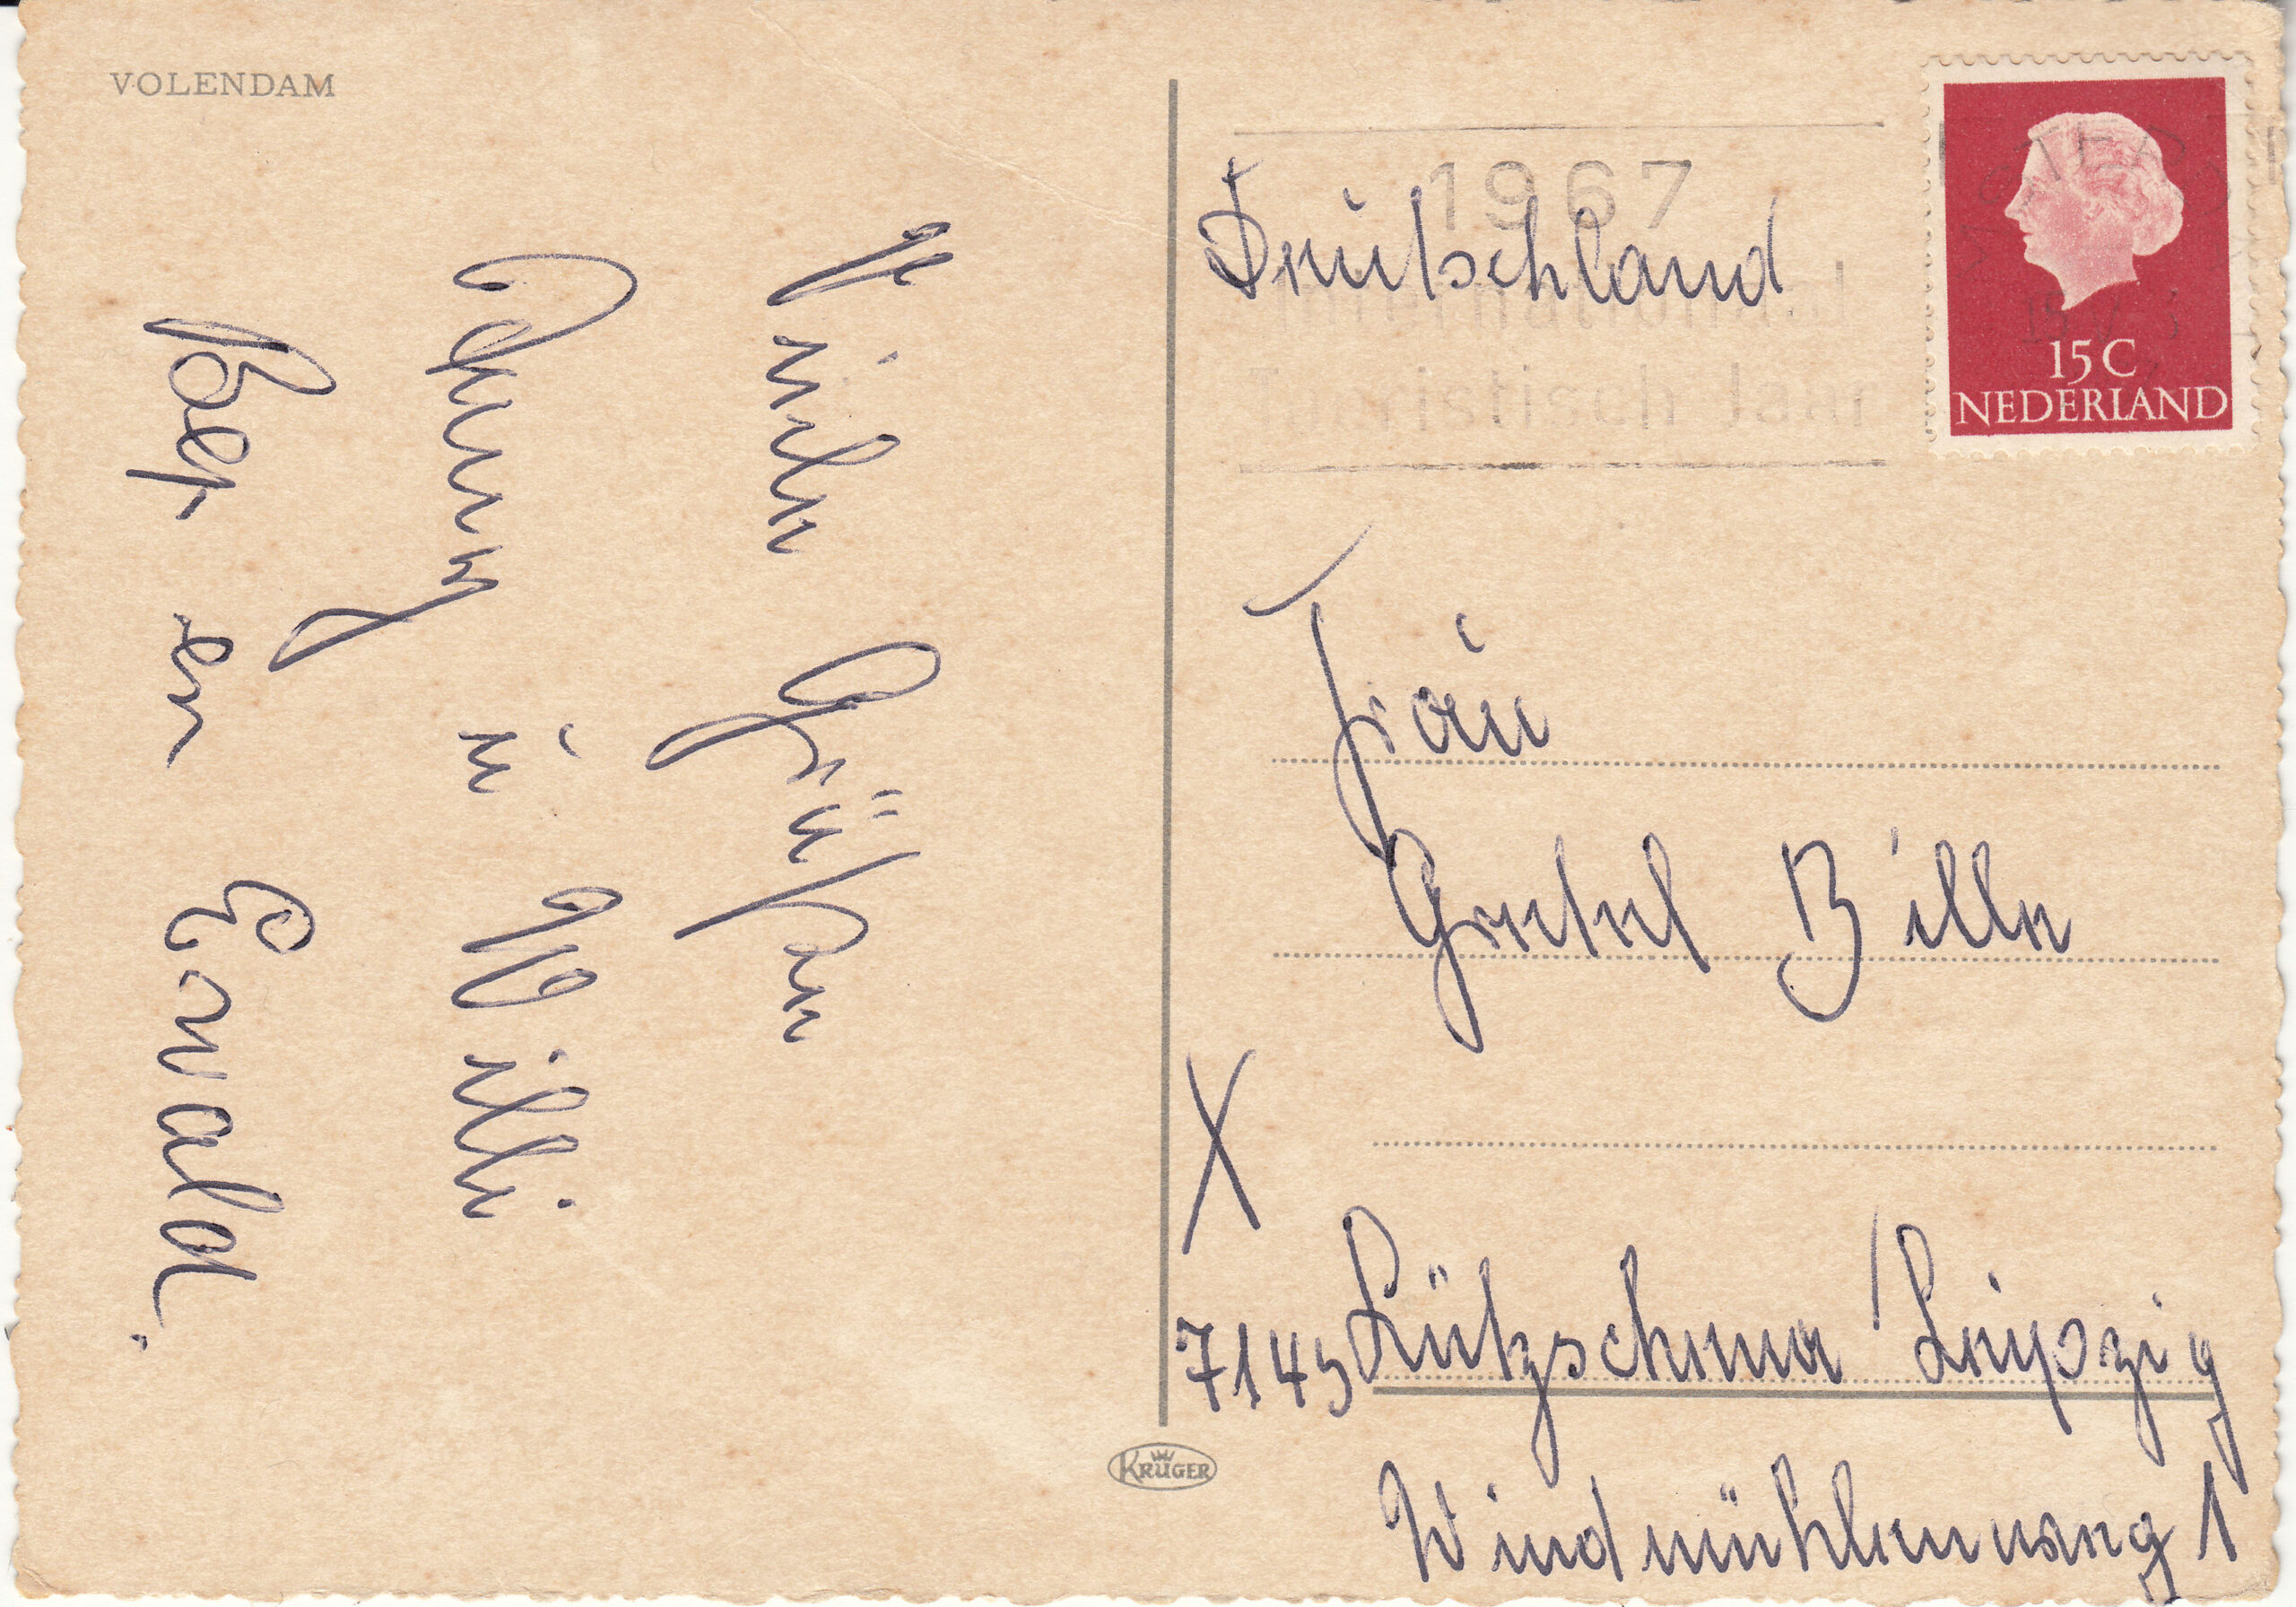 VOLENDAM
Viele Grüße
u Willi
Bep en Ewald.
1967
Internationaal
Toeristisch Jaar
15 C
NEDERLAND
Deutschland
Frau
Gretel Bille
X
7145 Lützschena /Leipzig
Windmühlenweg 1
KRÜGER